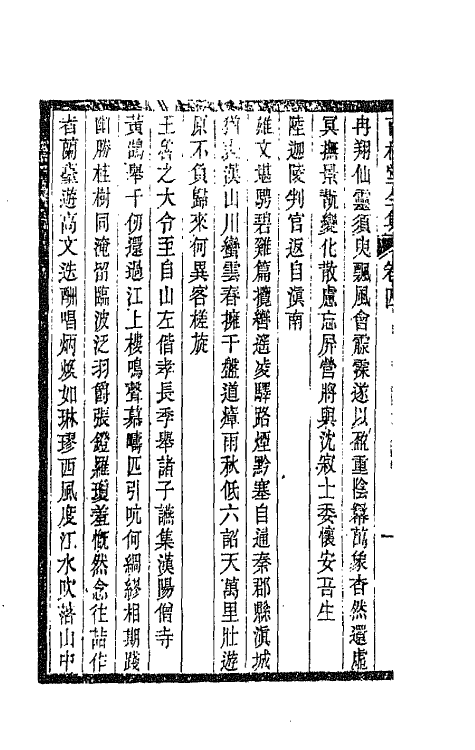 冉翔仙靈須臾飄風會霢霖遂以盈重陰羃萬象杳然還虛
冥撫景翫變化散慮忘屏營將與沈寂士委懷安吾生
陸迦陵判官返自滇南
雄文堪騁碧雞篇攬轡遙凌驛路煙黔塞自通秦郡縣滇城
猶是漢山川蠻雲春擁千盤道瘴雨秋低六詔天萬里壯遊
原不負歸來何異客槎旋
王 之大令至自山左偕孝長季舉諸子讌集漢陽僧寺
黃鵠舉千仞還過江上樓鳴聲慕疇匹引吭何綢繆相期踐
幽勝桂樹同淹留臨波泛羽爵張鐙羅瓊羞慨然念往詰作
者蘭臺遊高文迭酬唱炳焕如琳璆西風度江水吹落山中
卷四